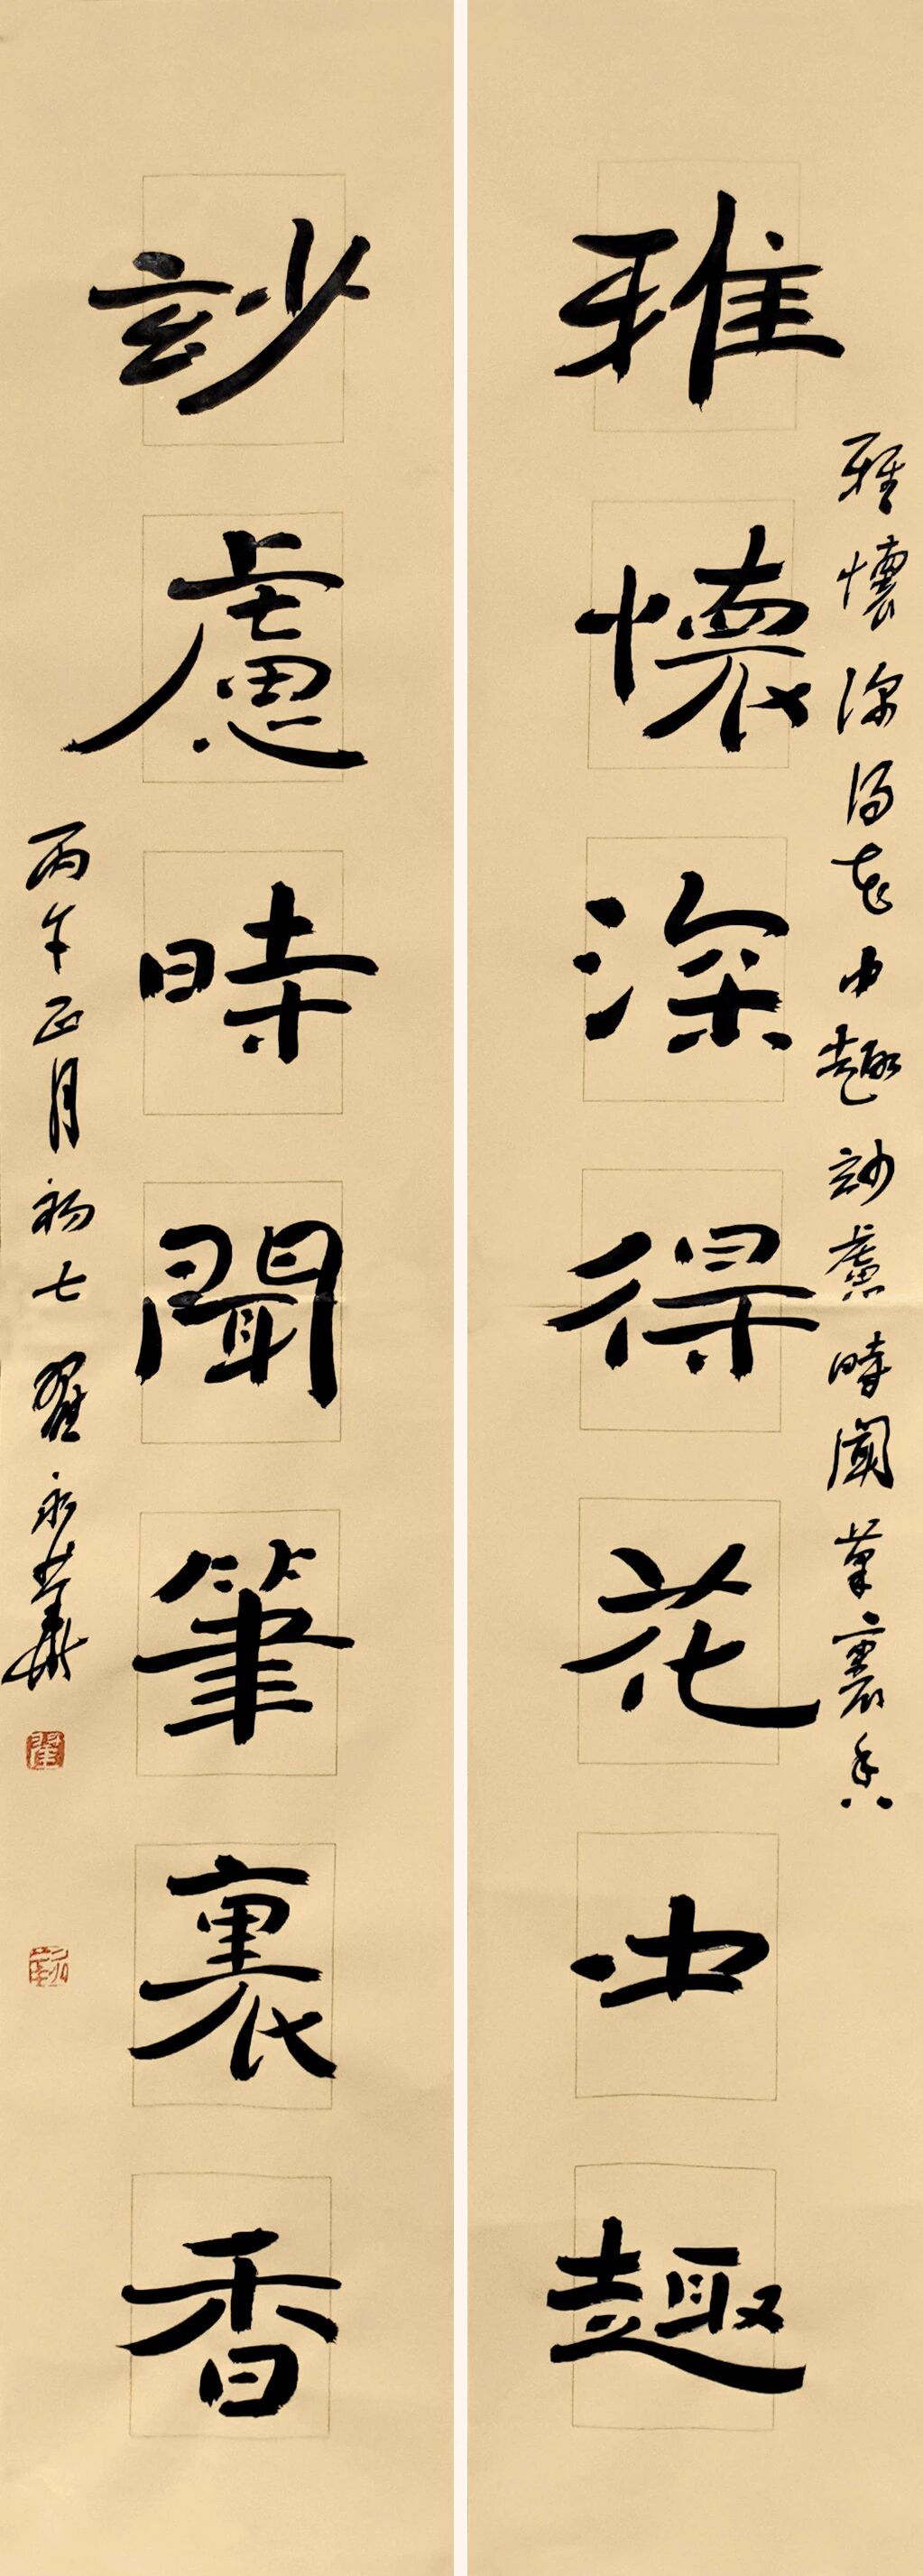 雅懷深得花中趣
雅懷深得花中趣妙慮時聞筆裏香
玅慮時聞筆裏香
丙午正月初七翟永華
翟